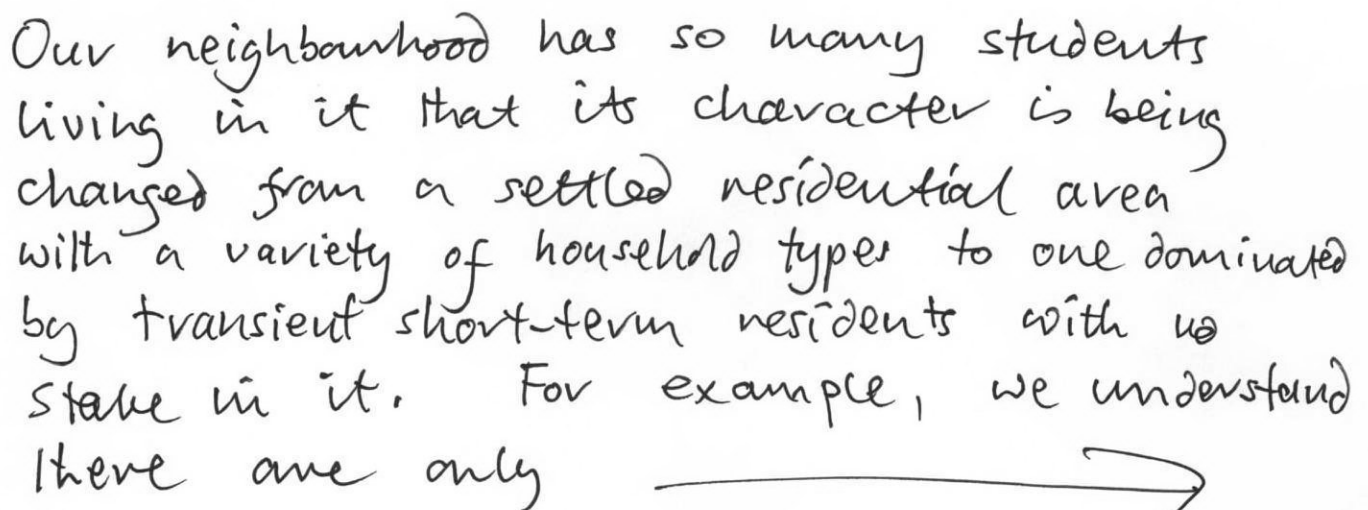 Our neighbourhood has so many students
living in it that its character is being
changed from a settled residential area
with a variety of household types to one dominated
by transient short-term residents with no
stake in it. For example, we understand
there are only